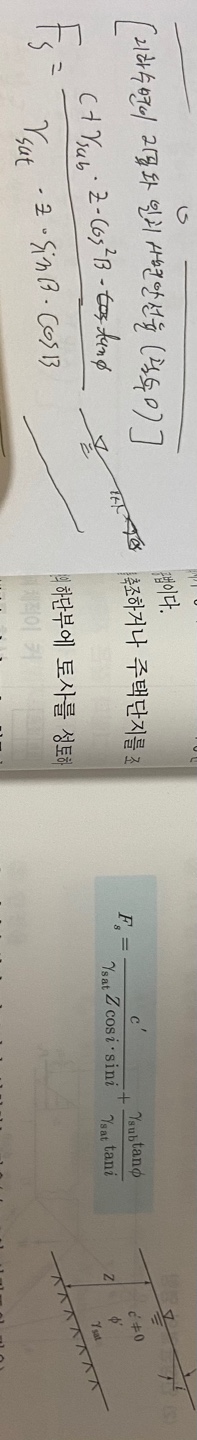 [지하수면이 지표와 일치 사면안전율 (침투 O)]
Fs = (C + γsub · Z · Cos²B · tanφ) / (γsat · Z · SinB · CosB)
법이다.
축조하거나 주택단지를 조
의 하단부에 토사를 성토하
F_s = c′ / (γsat Z cos i · sin i) + γsub tanφ / (γsat tan i)
i
c′≠0
φ′
Z
γsat